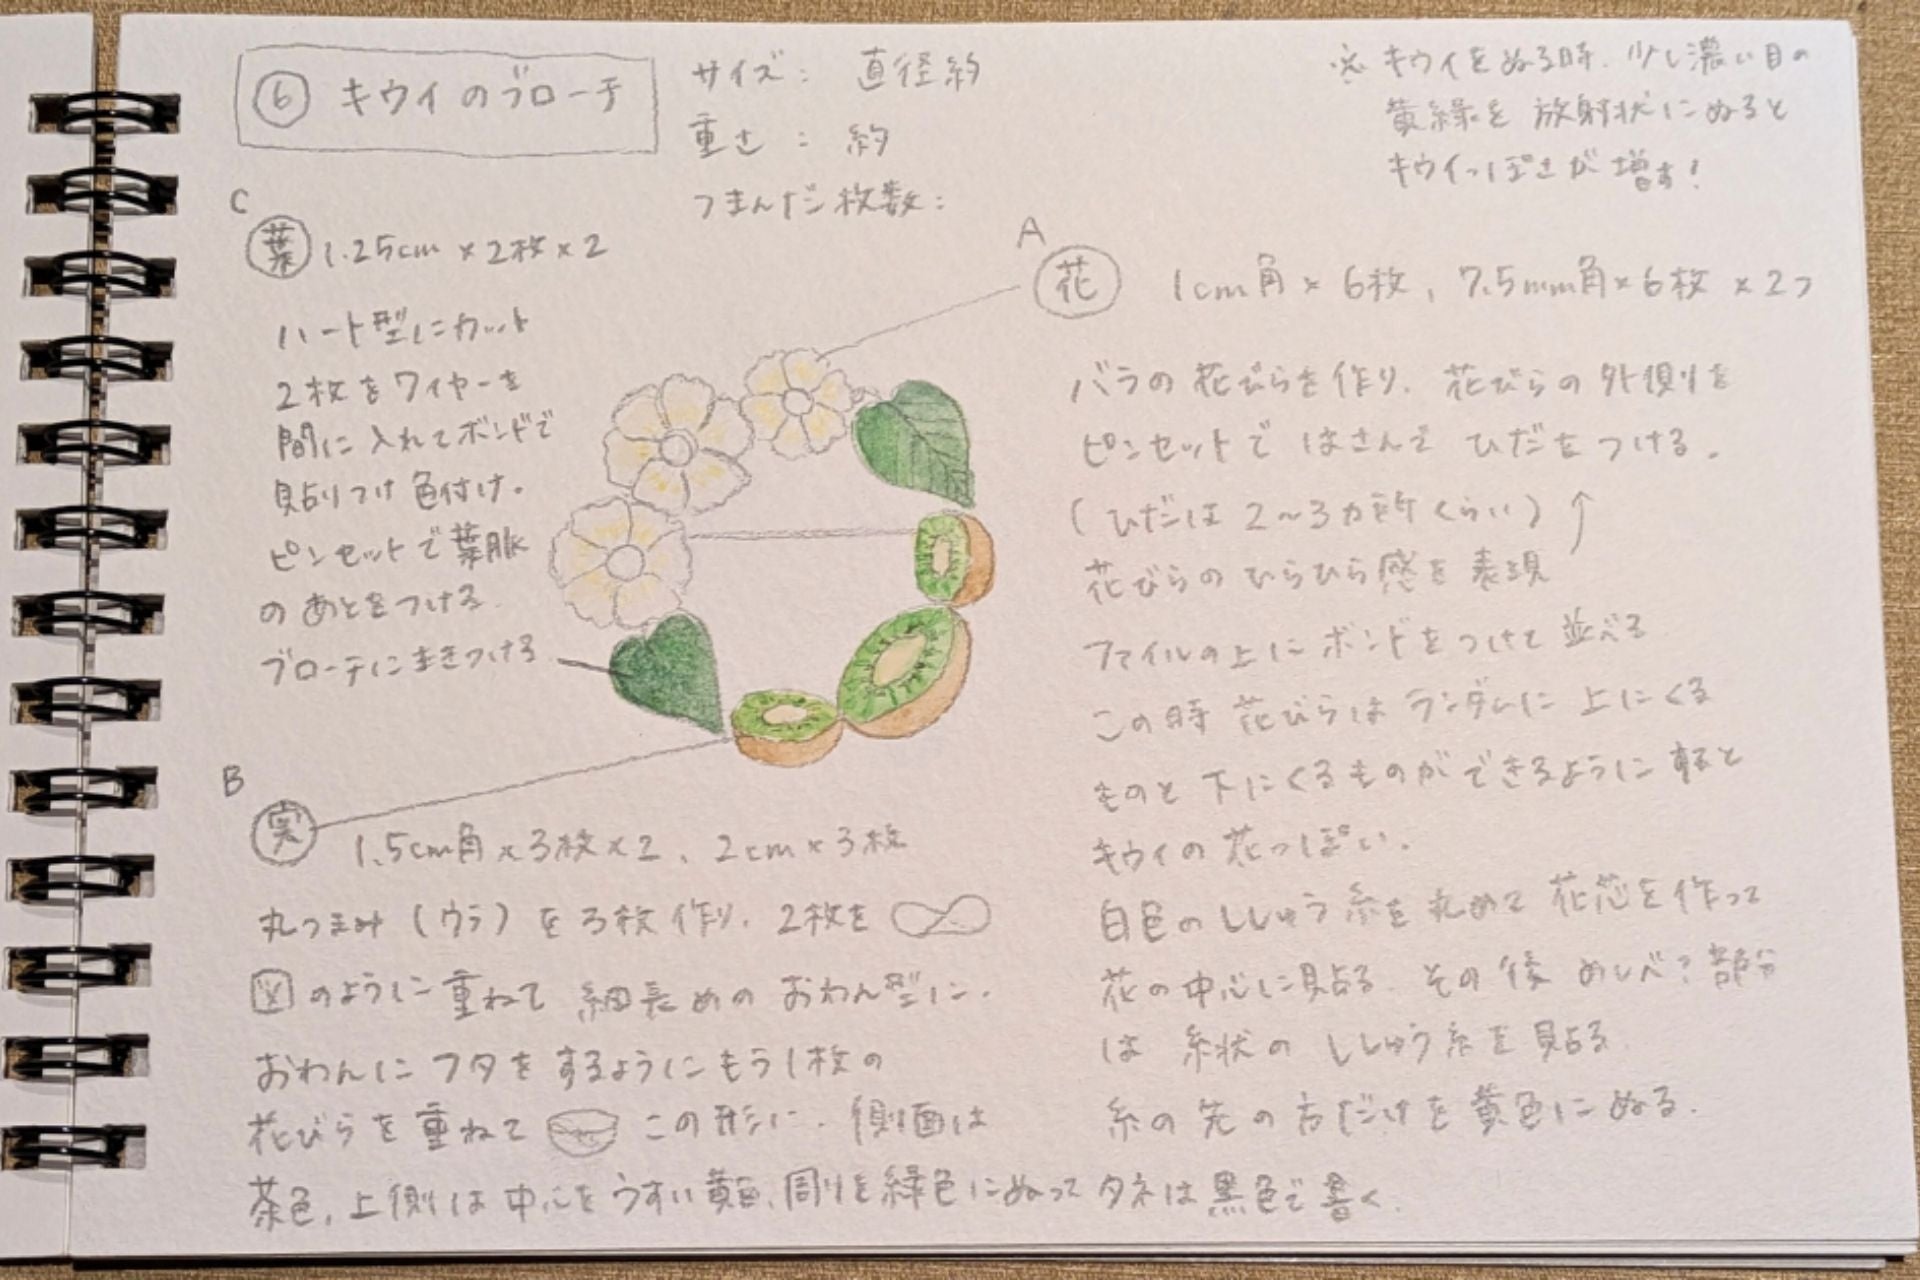 ⑥ キウイのブローチ
サイズ： 直径約
重さ： 約
つまんだ枚数：
※ キウイをぬる時、少し濃い目の
黄緑を放射状にぬると
キウイっぽさが増す！
C
葉 1.25cm×2枚×2
ハート型にカット
2枚をワイヤーを
間に入れてボンドで
貼りつけ色付け。
ピンセットで葉脈
のあとをつける。
ブローチにまきつける
A
花 1cm角×6枚、7.5mm角×6枚×2つ
バラの花びらを作り、花びらの外側を
ピンセットではさんでひだをつける。
(ひだは2～3カ所くらい)↑
花びらのひらひら感を表現
ファイルの上にボンドをつけて並べる
この時花びらはランダムに上にくる
ものと下にくるものができるようにすると
キウイの花っぽい。
白色のししゅう糸を丸めて花芯を作って
花の中心に貼る。その後めしべ？部分
は糸状のししゅう糸を貼る。
糸の先の方だけを黄色にぬる。
B
実 1.5cm角×3枚×2、2cm×3枚
丸つまみ(ウラ)を3枚作り、2枚を
図のように重ねて細長めのおわん型に。
おわんにフタをするようにもう1枚の
花びらを重ねてこの形に。側面は
茶色、上側は中心をうすい黄色、周りを緑色にぬってタネは黒色で書く。